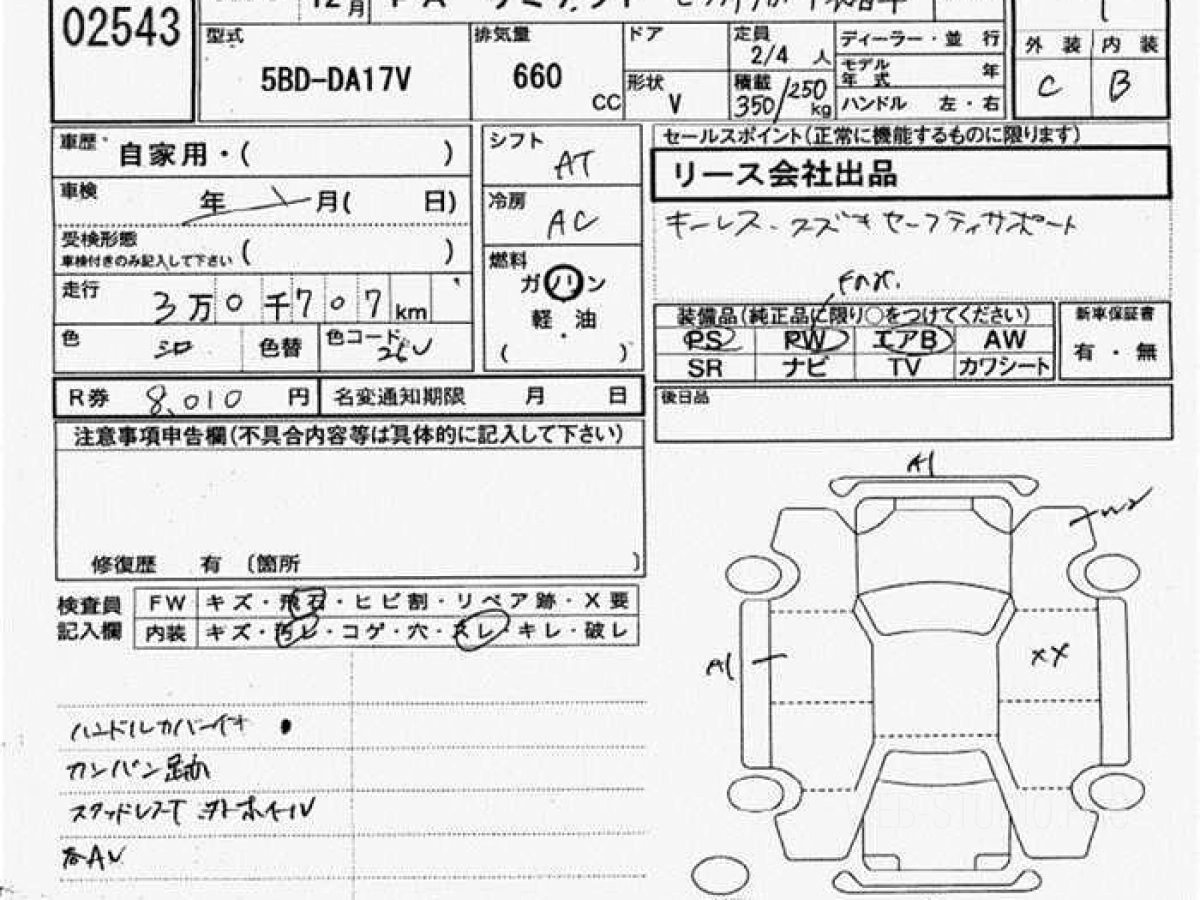 02543
12月
型式 5BD-DA17V
排気量 660 CC
ドア
形状 V
定員 2/4 人
積載 350/250 kg
ディーラー・並行
モデル年式 年
ハンドル 左・右
外装 内装
C B
車歴・ 自家用・( )
車検 年 月( 日)
受検形態 ( )
車検付きのみ記入して下さい
走行 3万0千707km
色 シロ 色替 色コード 26V
シフト AT
冷房 AC
燃料
ガソリン
軽・油
( )
セールスポイント(正常に機能するものに限ります)
リース会社出品
キーレス・スズキセーフティサポート
装備品(純正品に限り○をつけてください)
PS PW エアB AW
SR ナビ TV カワシート
新車保証書
有・無
R券 8,010 円 名変通知期限 月 日
後日品
注意事項申告欄(不具合内容等は具体的に記入して下さい)
修復歴 有 〔箇所 〕
検査員記入欄
FW キズ・飛石・ヒビ割・リペア跡・X要
内装 キズ・汚レ・コゲ・穴・スレ・キレ・破レ
ハンドルカバー付
カンバン跡
スタッドレスT
各AU
A1
A1
XX